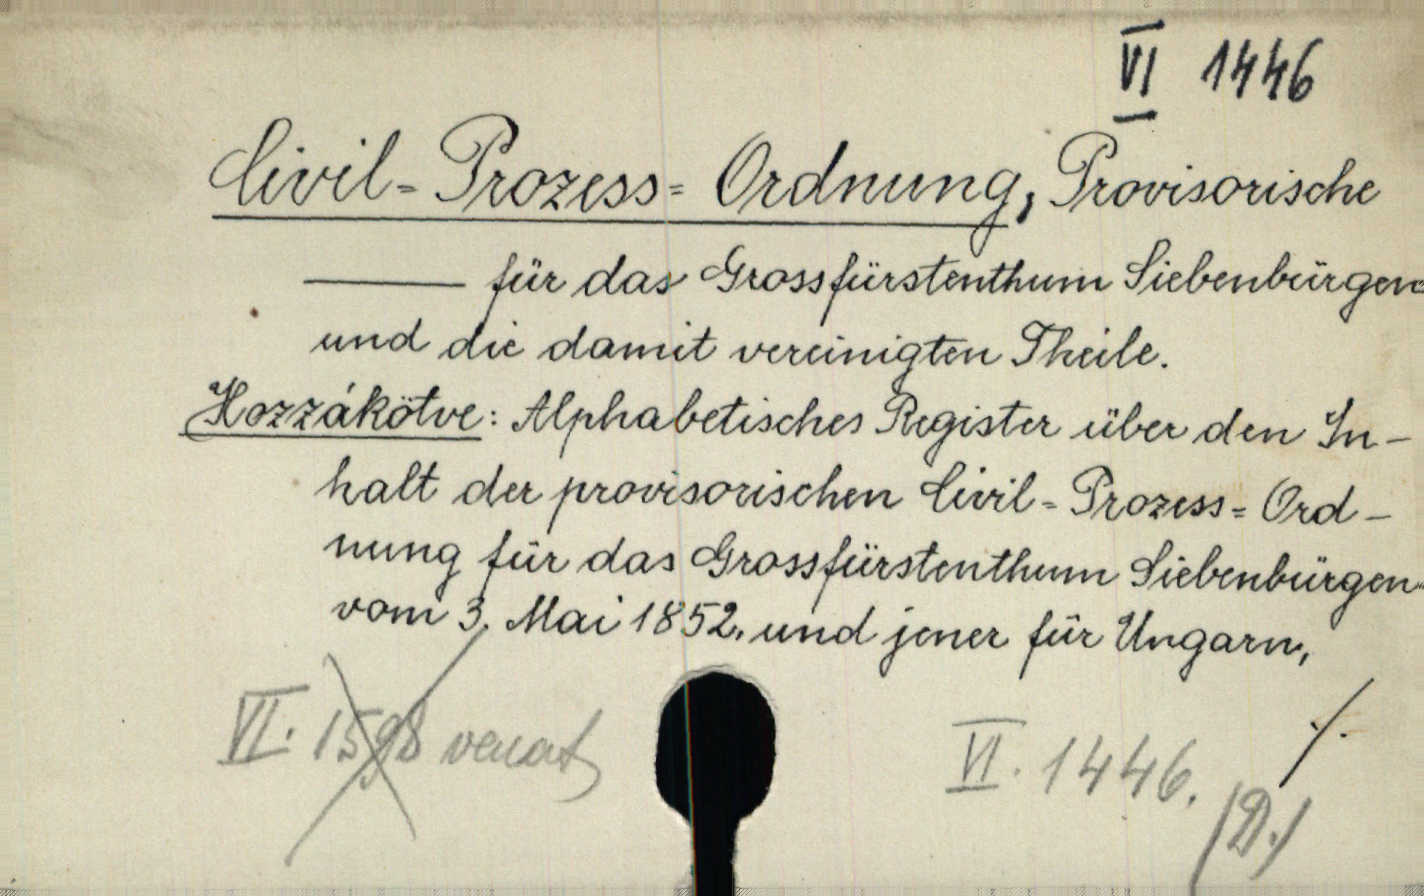 VI 1446
Civil-Prozess-Ordnung, Provisorische
—— für das Grossfürstenthum Siebenbürgen
und die damit vereinigten Theile.
Hozzákötve: Alphabetisches Register über den In-
halt der provisorischen Civil-Prozess-Ord-
nung für das Grossfürstenthum Siebenbürgen
vom 3. Mai 1852. und jener für Ungarn,
./.
VI. 1598
VI. 1446.
(D.)